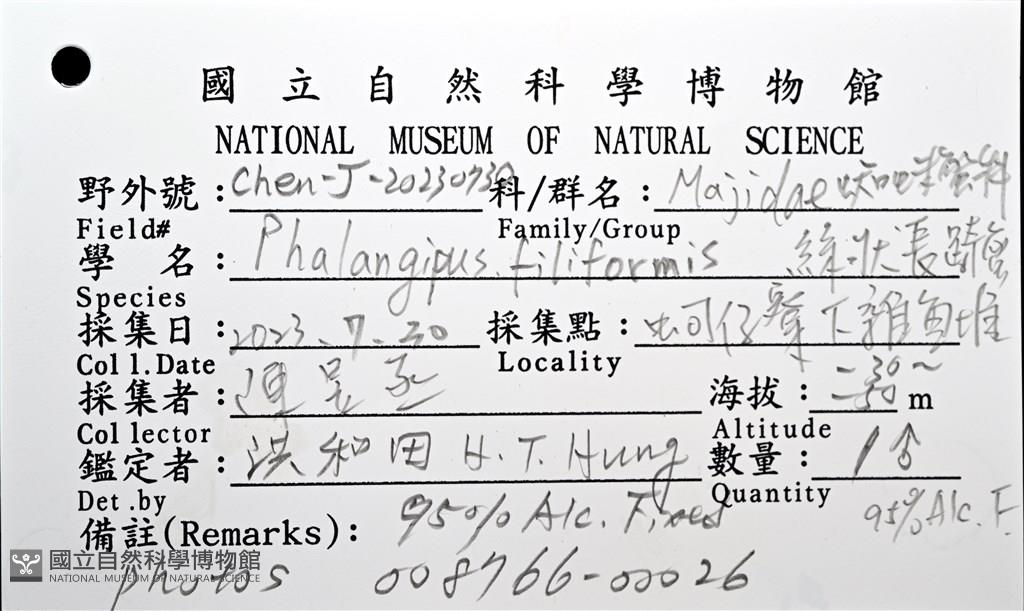 國立自然科學博物館
NATIONAL MUSEUM OF NATURAL SCIENCE
野外號：Chen-J-20230730 科/群名：Majidae
Field# Family/Group
學 名：Phalangipus filiformis 絲狀長踦蟹
Species
採集日：2023.7.30 採集點：蚵仔寮下雜魚堆
Coll.Date Locality
採集者：陳 丞 海拔：-30~ m
Collector Altitude
鑑定者：洪和田 H.T. Hung 數量：1♂
Det.by Quantity
備註(Remarks)：95% Alc. Fixed 95% Alc. F.
photos 008766-00026
國立自然科學博物館
NATIONAL MUSEUM OF NATURAL SCIENCE